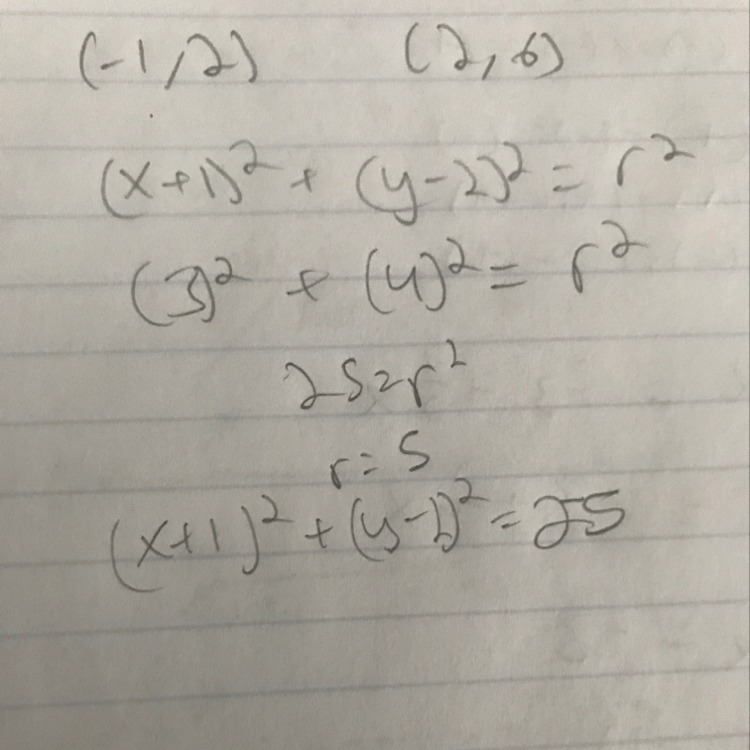 (-1,2) (2,6)
(x+1)² + (y-2)² = r²
(3)² + (4)² = r²
25=r²
r=5
(x+1)² + (y-2)² = 25